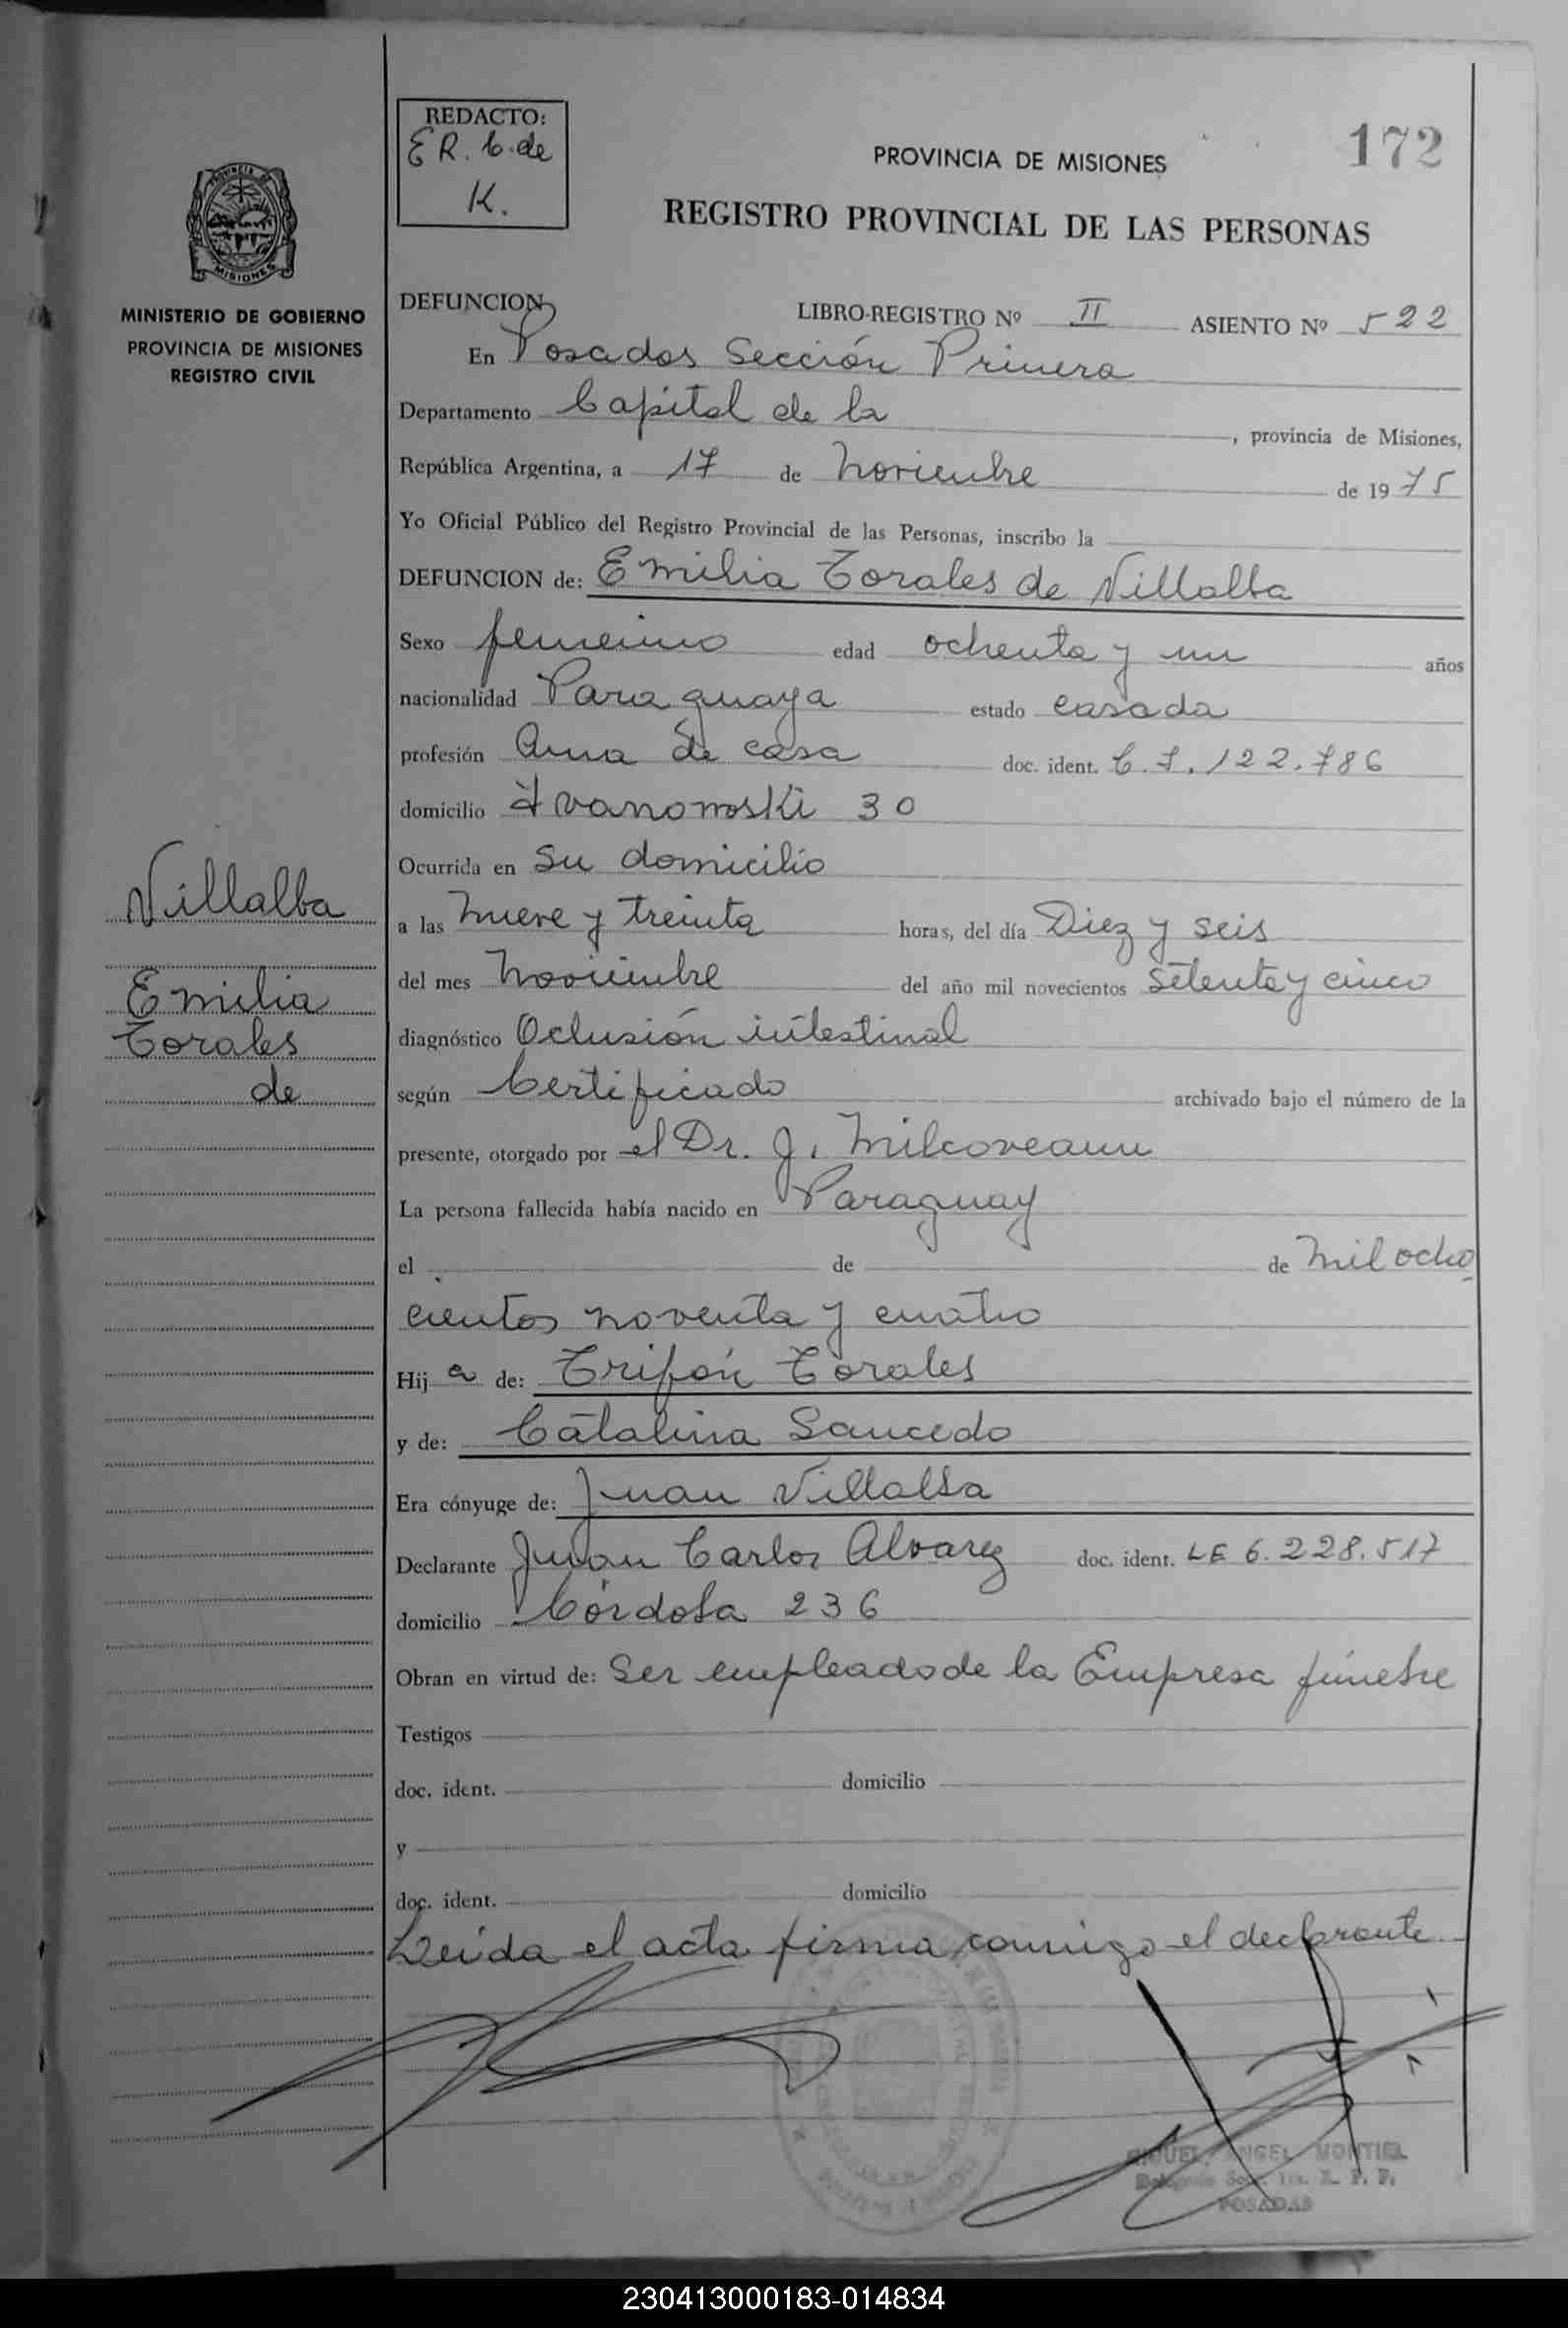 REDACTO:
E R. C. de
K.
172
PROVINCIA DE MISIONES
REGISTRO PROVINCIAL DE LAS PERSONAS
PROVINCIA DE
MISIONES
MINISTERIO DE GOBIERNO
PROVINCIA DE MISIONES
REGISTRO CIVIL
DEFUNCION
LIBRO-REGISTRO Nº II ASIENTO Nº 522
En Posadas Sección Primera
Departamento Capital de la , provincia de Misiones,
República Argentina, a 17 de Noviembre de 1975
Yo Oficial Público del Registro Provincial de las Personas, inscribo la
DEFUNCION de: Emilia Torales de Villalba
Sexo femenino edad ochenta y un años
nacionalidad Paraguaya estado casada
profesión Ama de casa doc. ident. C.I. 122.786
domicilio Ivanowski 30
Ocurrida en su domicilio
a las Nueve y treinta horas, del día Diez y seis
del mes Noviembre del año mil novecientos setenta y cinco
diagnóstico Oclusión intestinal
según Certificado archivado bajo el número de la
presente, otorgado por el Dr. J. Milcoveanu
La persona fallecida había nacido en Paraguay
el de de Mil ocho
cientos noventa y cuatro
Hija de: Trifón Torales
y de: Catalina Saucedo
Era cónyuge de: Juan Villalba
Declarante Juan Carlos Alvarez doc. ident. LE 6.228.517
domicilio Córdoba 236
Obran en virtud de: Ser empleado de la Empresa fúnebre
Testigos
doc. ident. domicilio
y
doc. ident. domicilio
Leida el acta firma conmigo el declarante
Villalba
Emilia
Torales
de
MIGUEL ANGEL MONTIEL
POSADAS
230413000183-014834